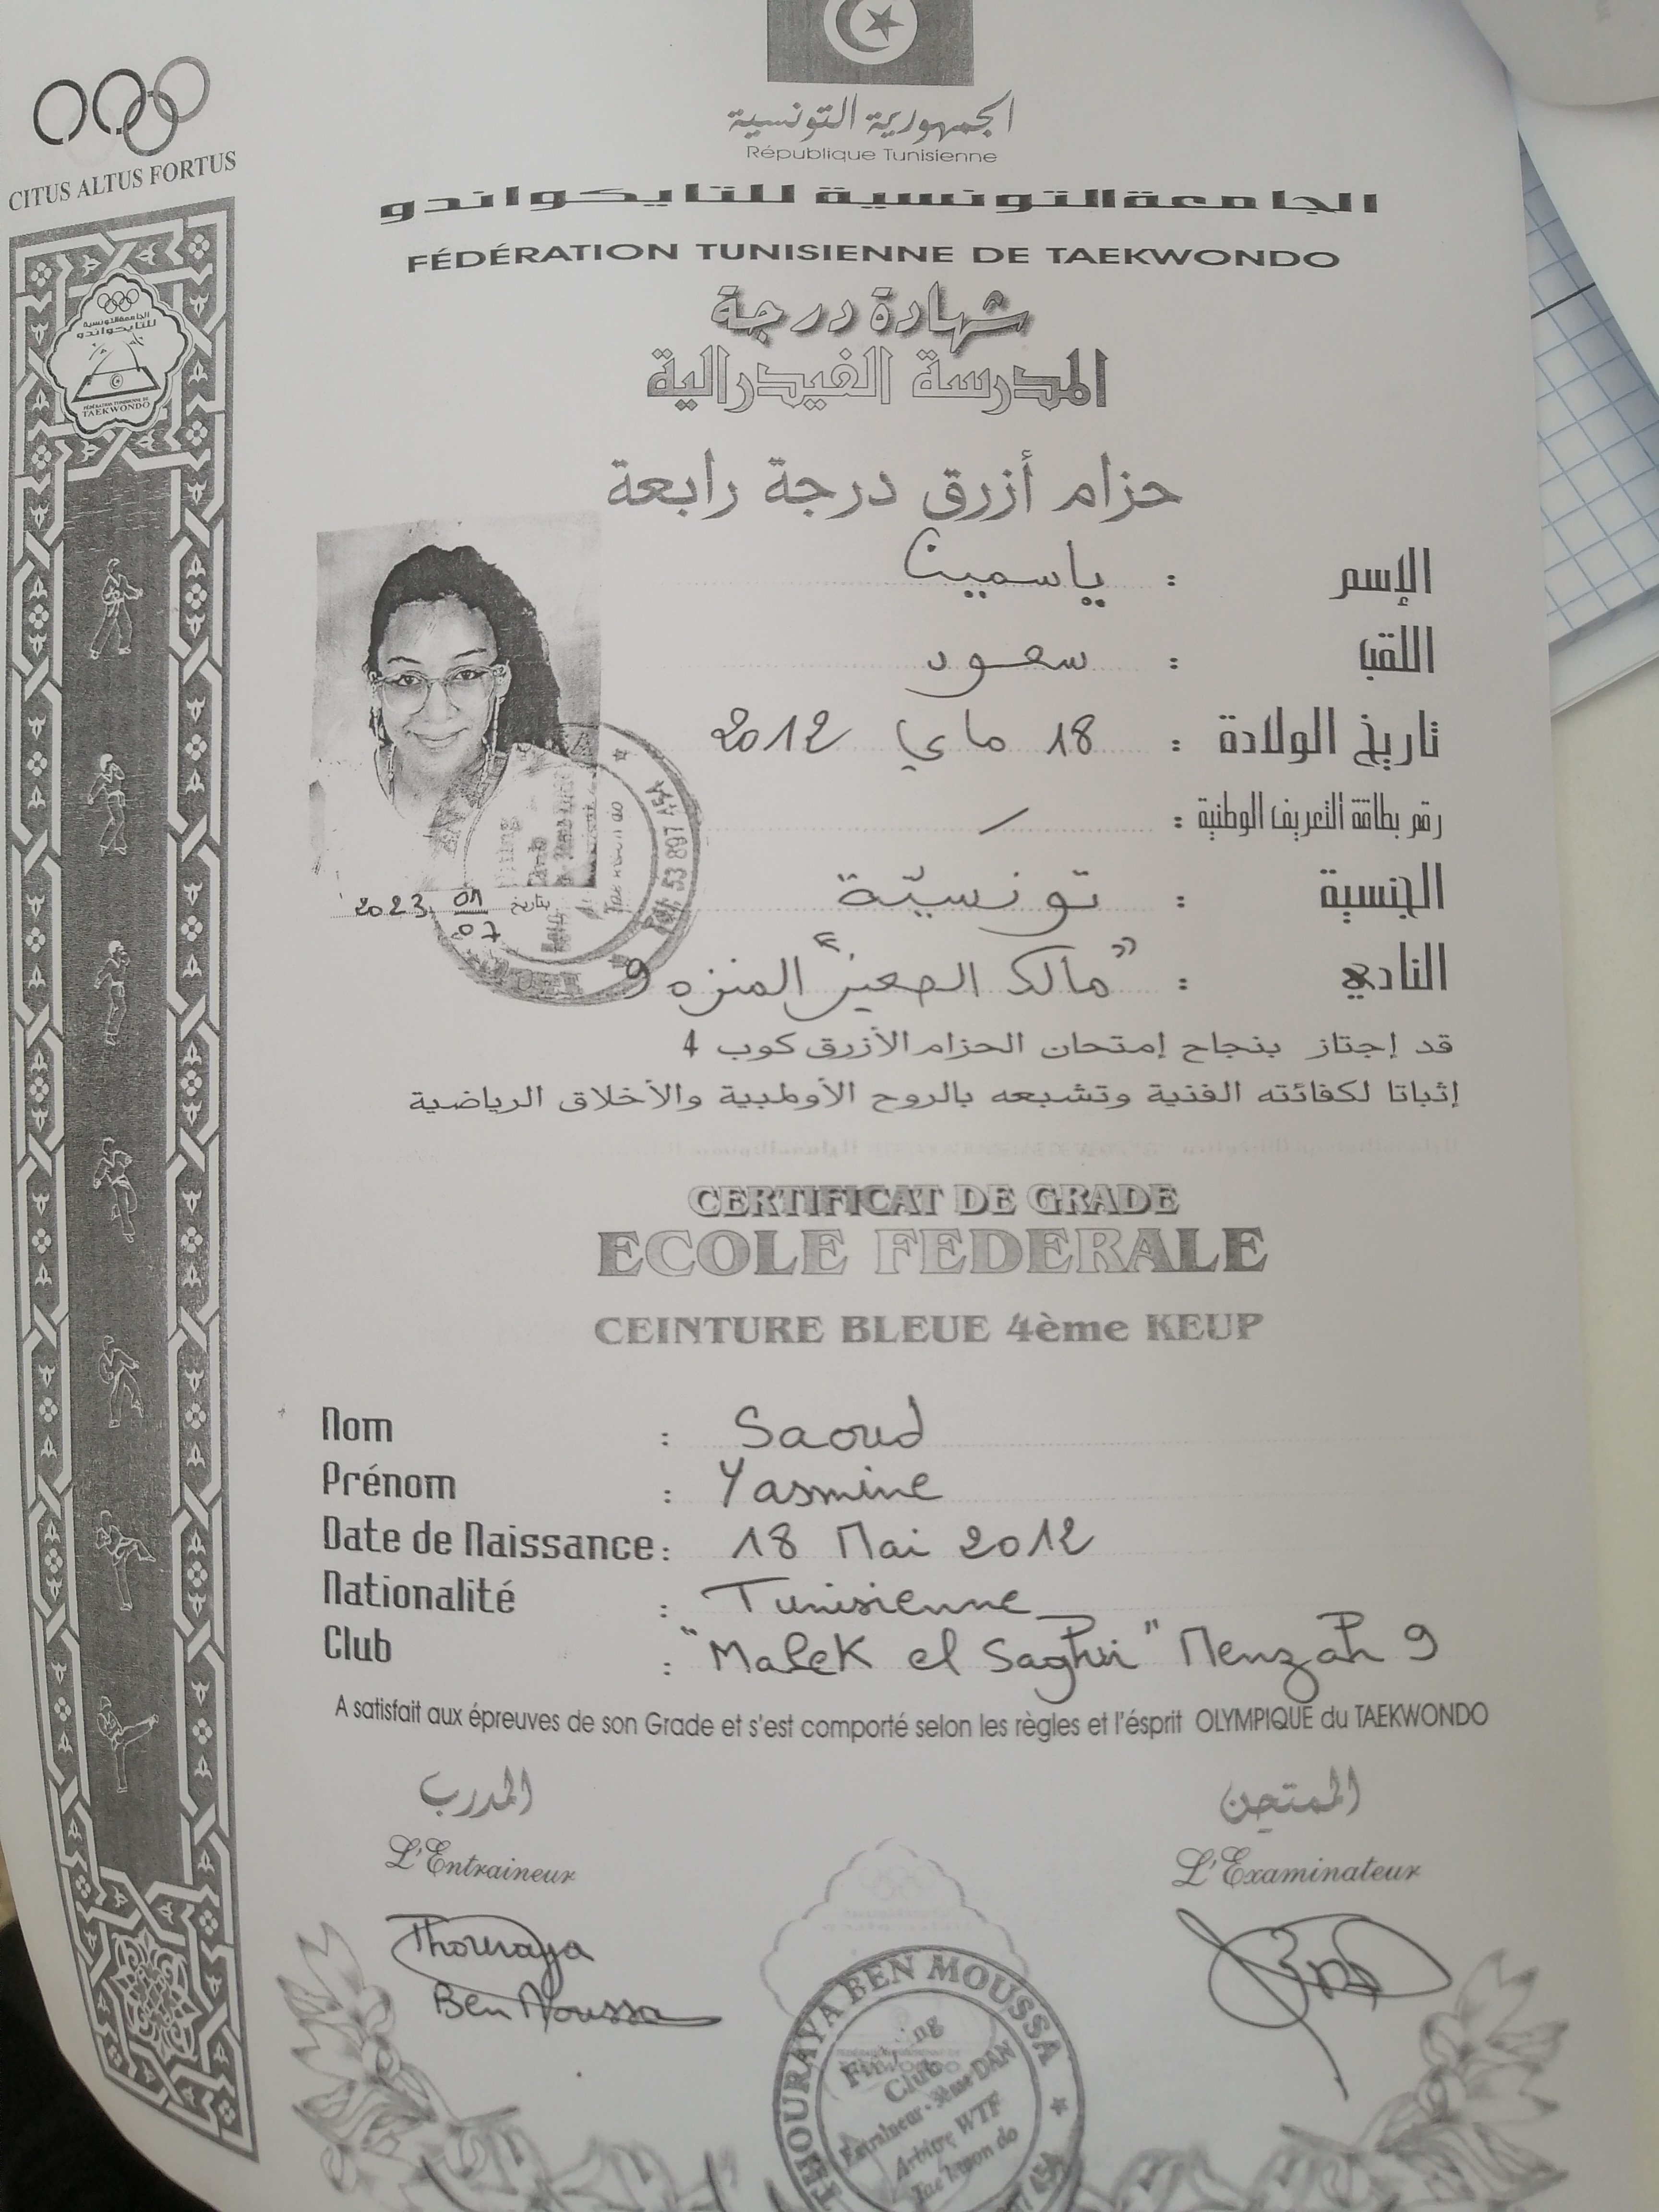 CITUS ALTUS FORTUS
الجمهورية التونسية
République Tunisienne
الجامعة التونسية للتايكواندو
FÉDÉRATION TUNISIENNE DE TAEKWONDO
شهادة درجة
المدرسة الفيدرالية
الجامعة التونسية
للتايكواندو
FÉDÉRATION TUNISIENNE DE
TAEKWONDO
حزام أزرق درجة رابعة
الإسم : ياسمين
اللقب : سعود
تاريخ الولادة : 18 ماي 2012
رقم بطاقة التعريف الوطنية : /
الجنسية : تونسيّة
النادي : "مالك الصغير" المنزه 9
بتاريخ 07 01 2023
53 897 45A
قد إجتاز بنجاح إمتحان الحزام الأزرق كوب 4
إثباتا لكفائته الفنية وتشبعه بالروح الأولمبية والأخلاق الرياضية
CERTIFICAT DE GRADE
ECOLE FEDERALE
CEINTURE BLEUE 4ème KEUP
Nom : Saoud
Prénom : Yasmine
Date de Naissance : 18 Mai 2012
Nationalité : Tunisienne
Club : "Malek el Saghir" Menzah 9
A satisfait aux épreuves de son Grade et s'est comporté selon les règles et l'ésprit OLYMPIQUE du TAEKWONDO
المدرب
L'Entraineur
الممتحن
L'Examinateur
Thouraya
Ben Moussa
THOURAYA BEN MOUSSA
Club
Entraîneur - 3ème DAN
Arbitre WTF
Tae kwon do